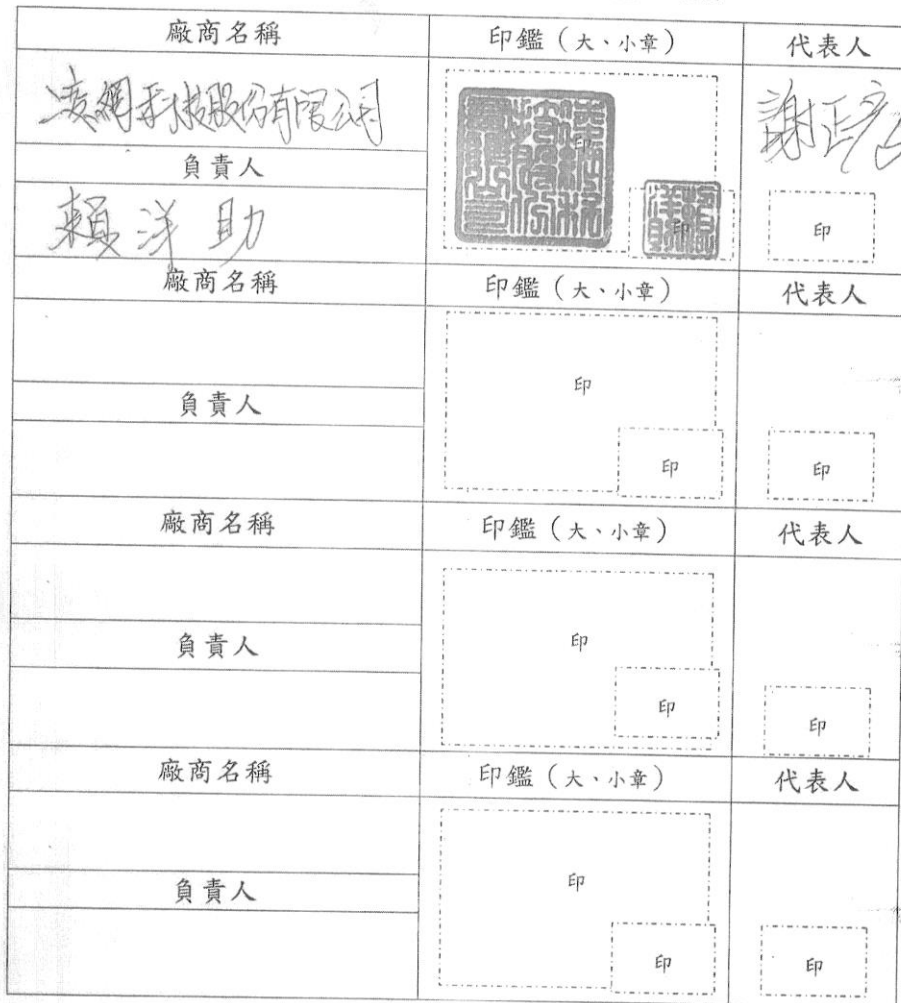 廠商名稱 印鑑（大、小章） 代表人
凌網科技股份有限公司 印 謝正
負責人
賴洋助 印 印
廠商名稱 印鑑（大、小章） 代表人
印
負責人
印 印
廠商名稱 印鑑（大、小章） 代表人
印
負責人
印 印
廠商名稱 印鑑（大、小章） 代表人
印
負責人
印 印